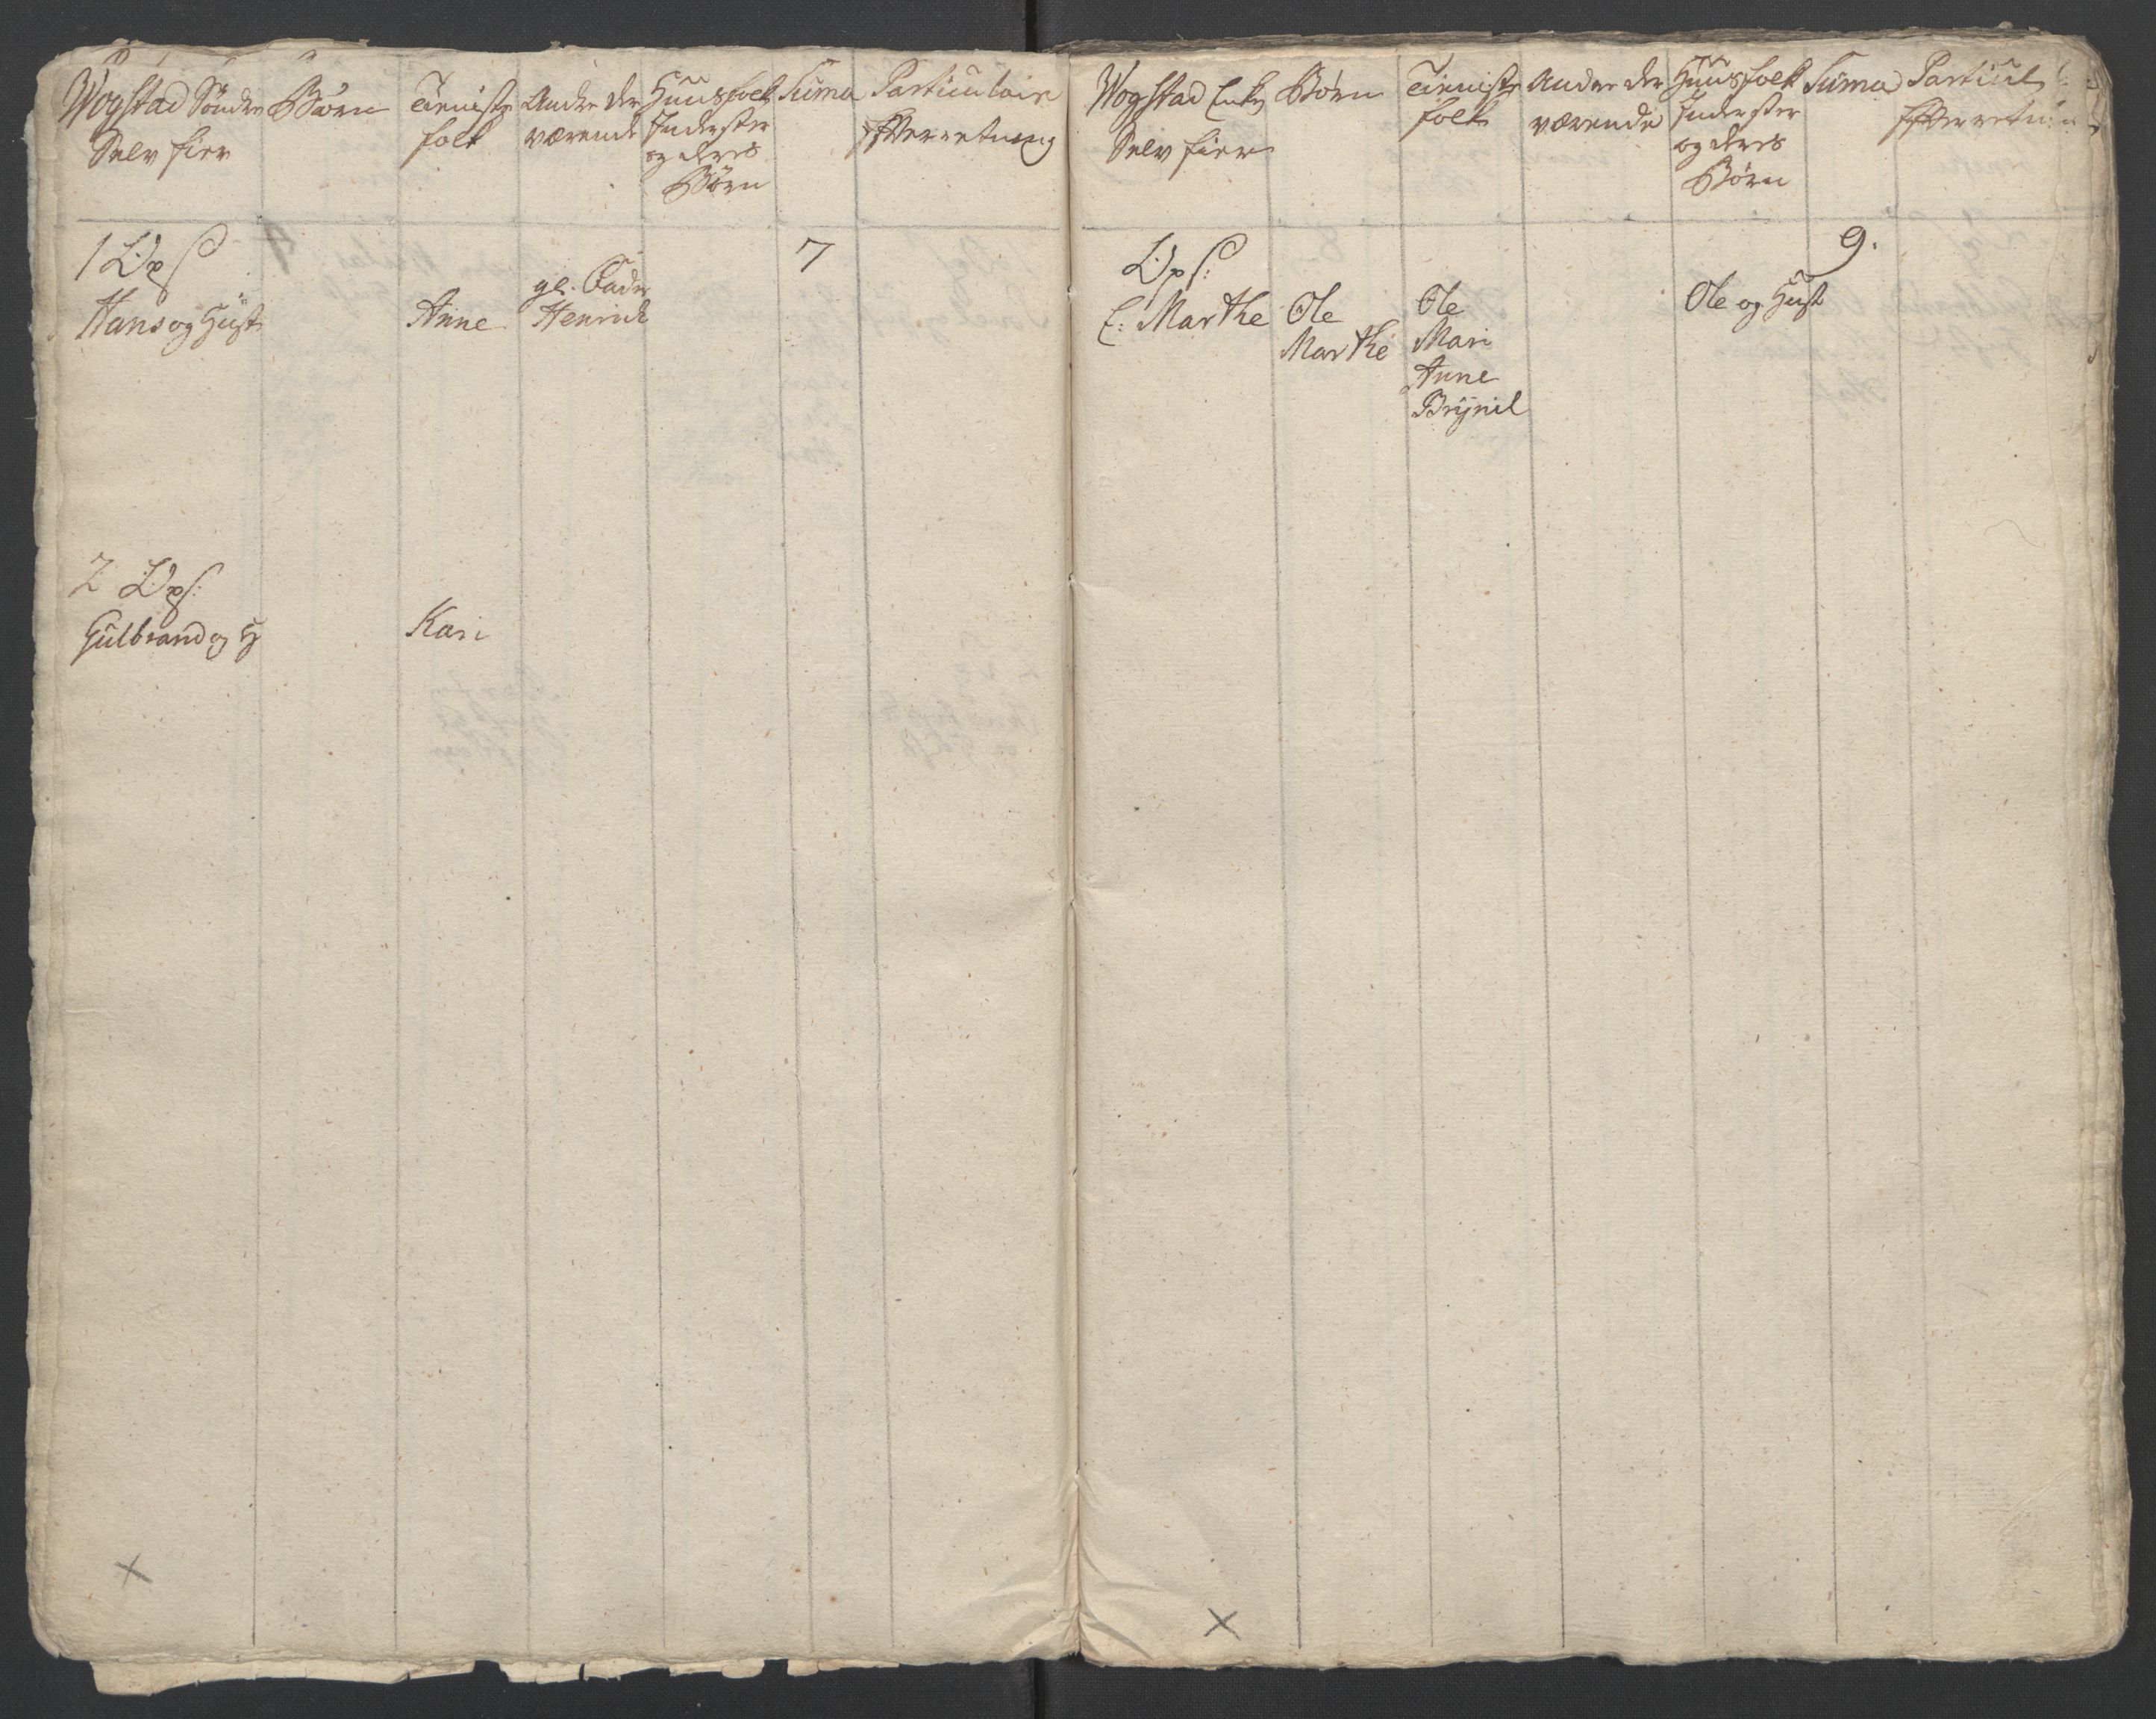 Wogstad Søndre
Selv Eier
Børn
Tieniste
folk
Andre der
værende
Huusfolk
Inderster
og deres
Børn
Suma
Particulair
Efterretning
1 Ops
Hans og Hust
Anne
gl. Fader
Henrich
7
2 Ops:
Gulbrand og H
Kari
Wogstad
Selv Eier
Børn
Tieniste
folk
Andre der
værende
Huusfolk
Inderster
og deres
Børn
Suma
Particul
Efterretnin
Ops:
E: Marthe
Ole
Marthe
Ole
Mari
Anne
Brÿnil
Ole og Hust
9.